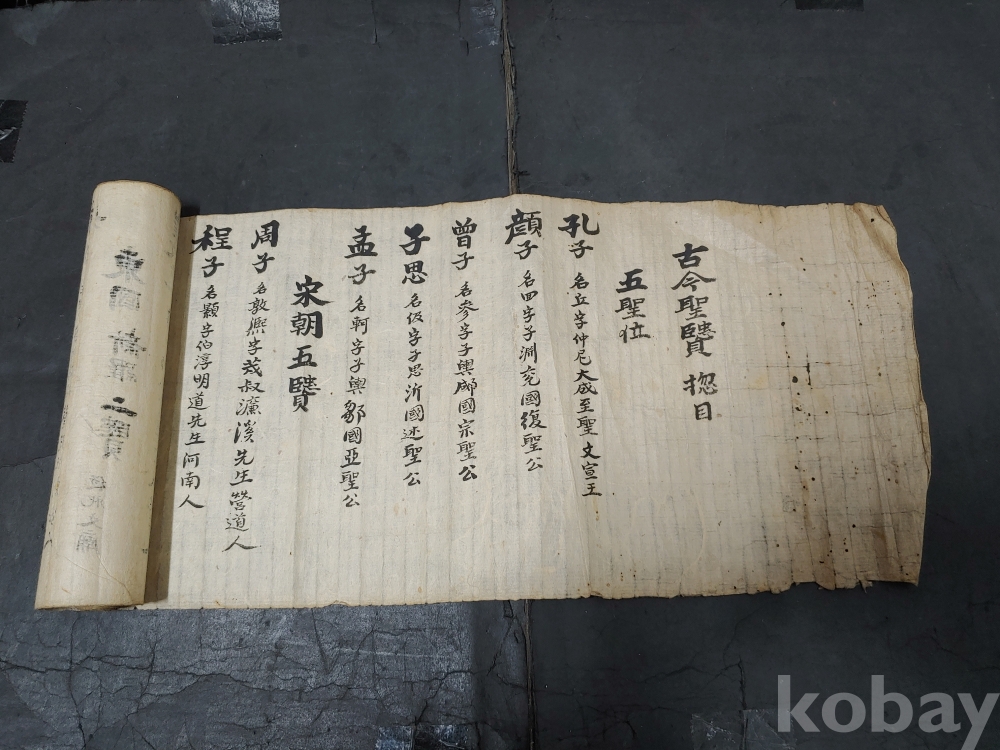 古今聖贒 揔目
五聖位
孔子 名丘字仲尼大成至聖文宣王
顔子 名回字子淵兗國復聖公
曾子 名參字子輿郕國宗聖公
子思 名伋字子思沂國述聖公
孟子 名軻字子輿鄒國亞聖公
宋朝五贒
周子 名敦頥字茂叔濂溪先生營道人
程子 名顥字伯淳明道先生河南人
東國新羅二贒
kobay